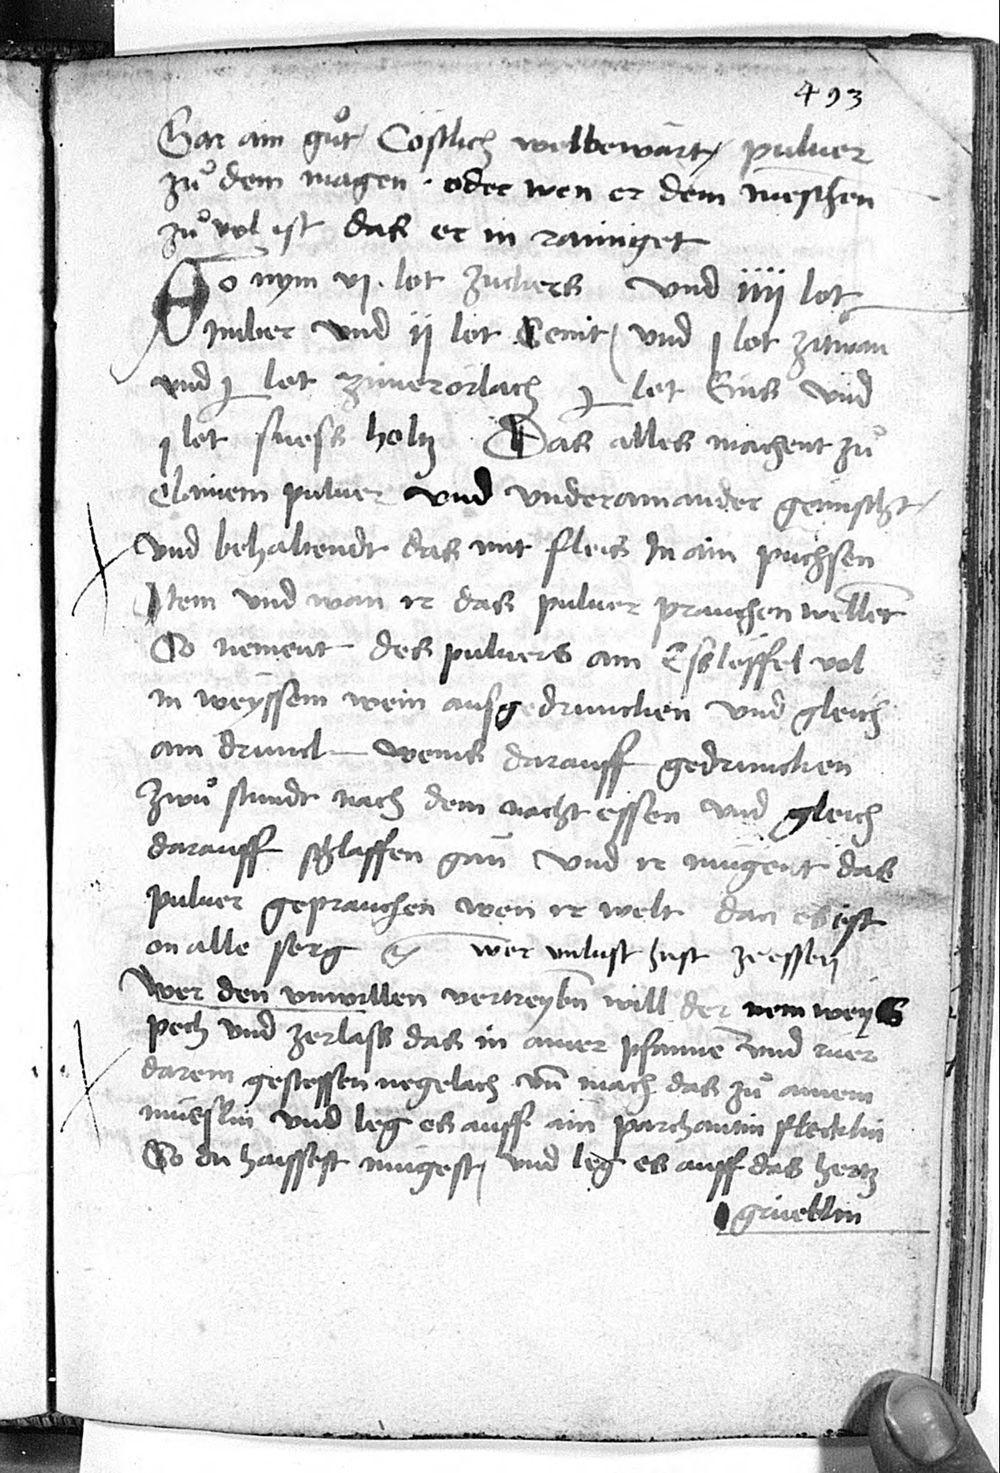 493
Gar ain guͦt Cöstlich welbewärt pulver
zuͦ dem magen · oder wen er dem menschen
zuͦ vol ist das er in rainiget
So nym vj · lot zuckers vnd iiij lot
Imber vnd ij lot Cemit vnd j lot zitwan
vnd j lot zimerörlach j lot Enis vnd
j lot suess holtz Das alles machent zuͦ
Clainem pulver vnd vnderainander gemischt
vnd behaltendt das mit fleis In ain püchsen
Item vnd wan ir das pulver prauchen wellet
So nement des pulvers ain Esslöffel vol
in weyssem wein ausgedruncken vnd gleich
ain drunck weins darauff gedruncken
Zwuͦ stundt nach dem nacht essen vnd gleich
darauff schlaffen gan vnd ir mügent das
pulver geprauchen wen ir welt dan es ist
on alle sorg wer vnlust hat ze essen
Wer den vnwillen vertreyben will der nem weys
pech vnd zerlass das in ainer pfannen vnd rier
darein gestossen negelach vnd mach das zuͦ ainem
müeslin vnd leg es auff ain parchantin flecklin
So du haissest mügest vnd leg es auff das hertz
grüeblin